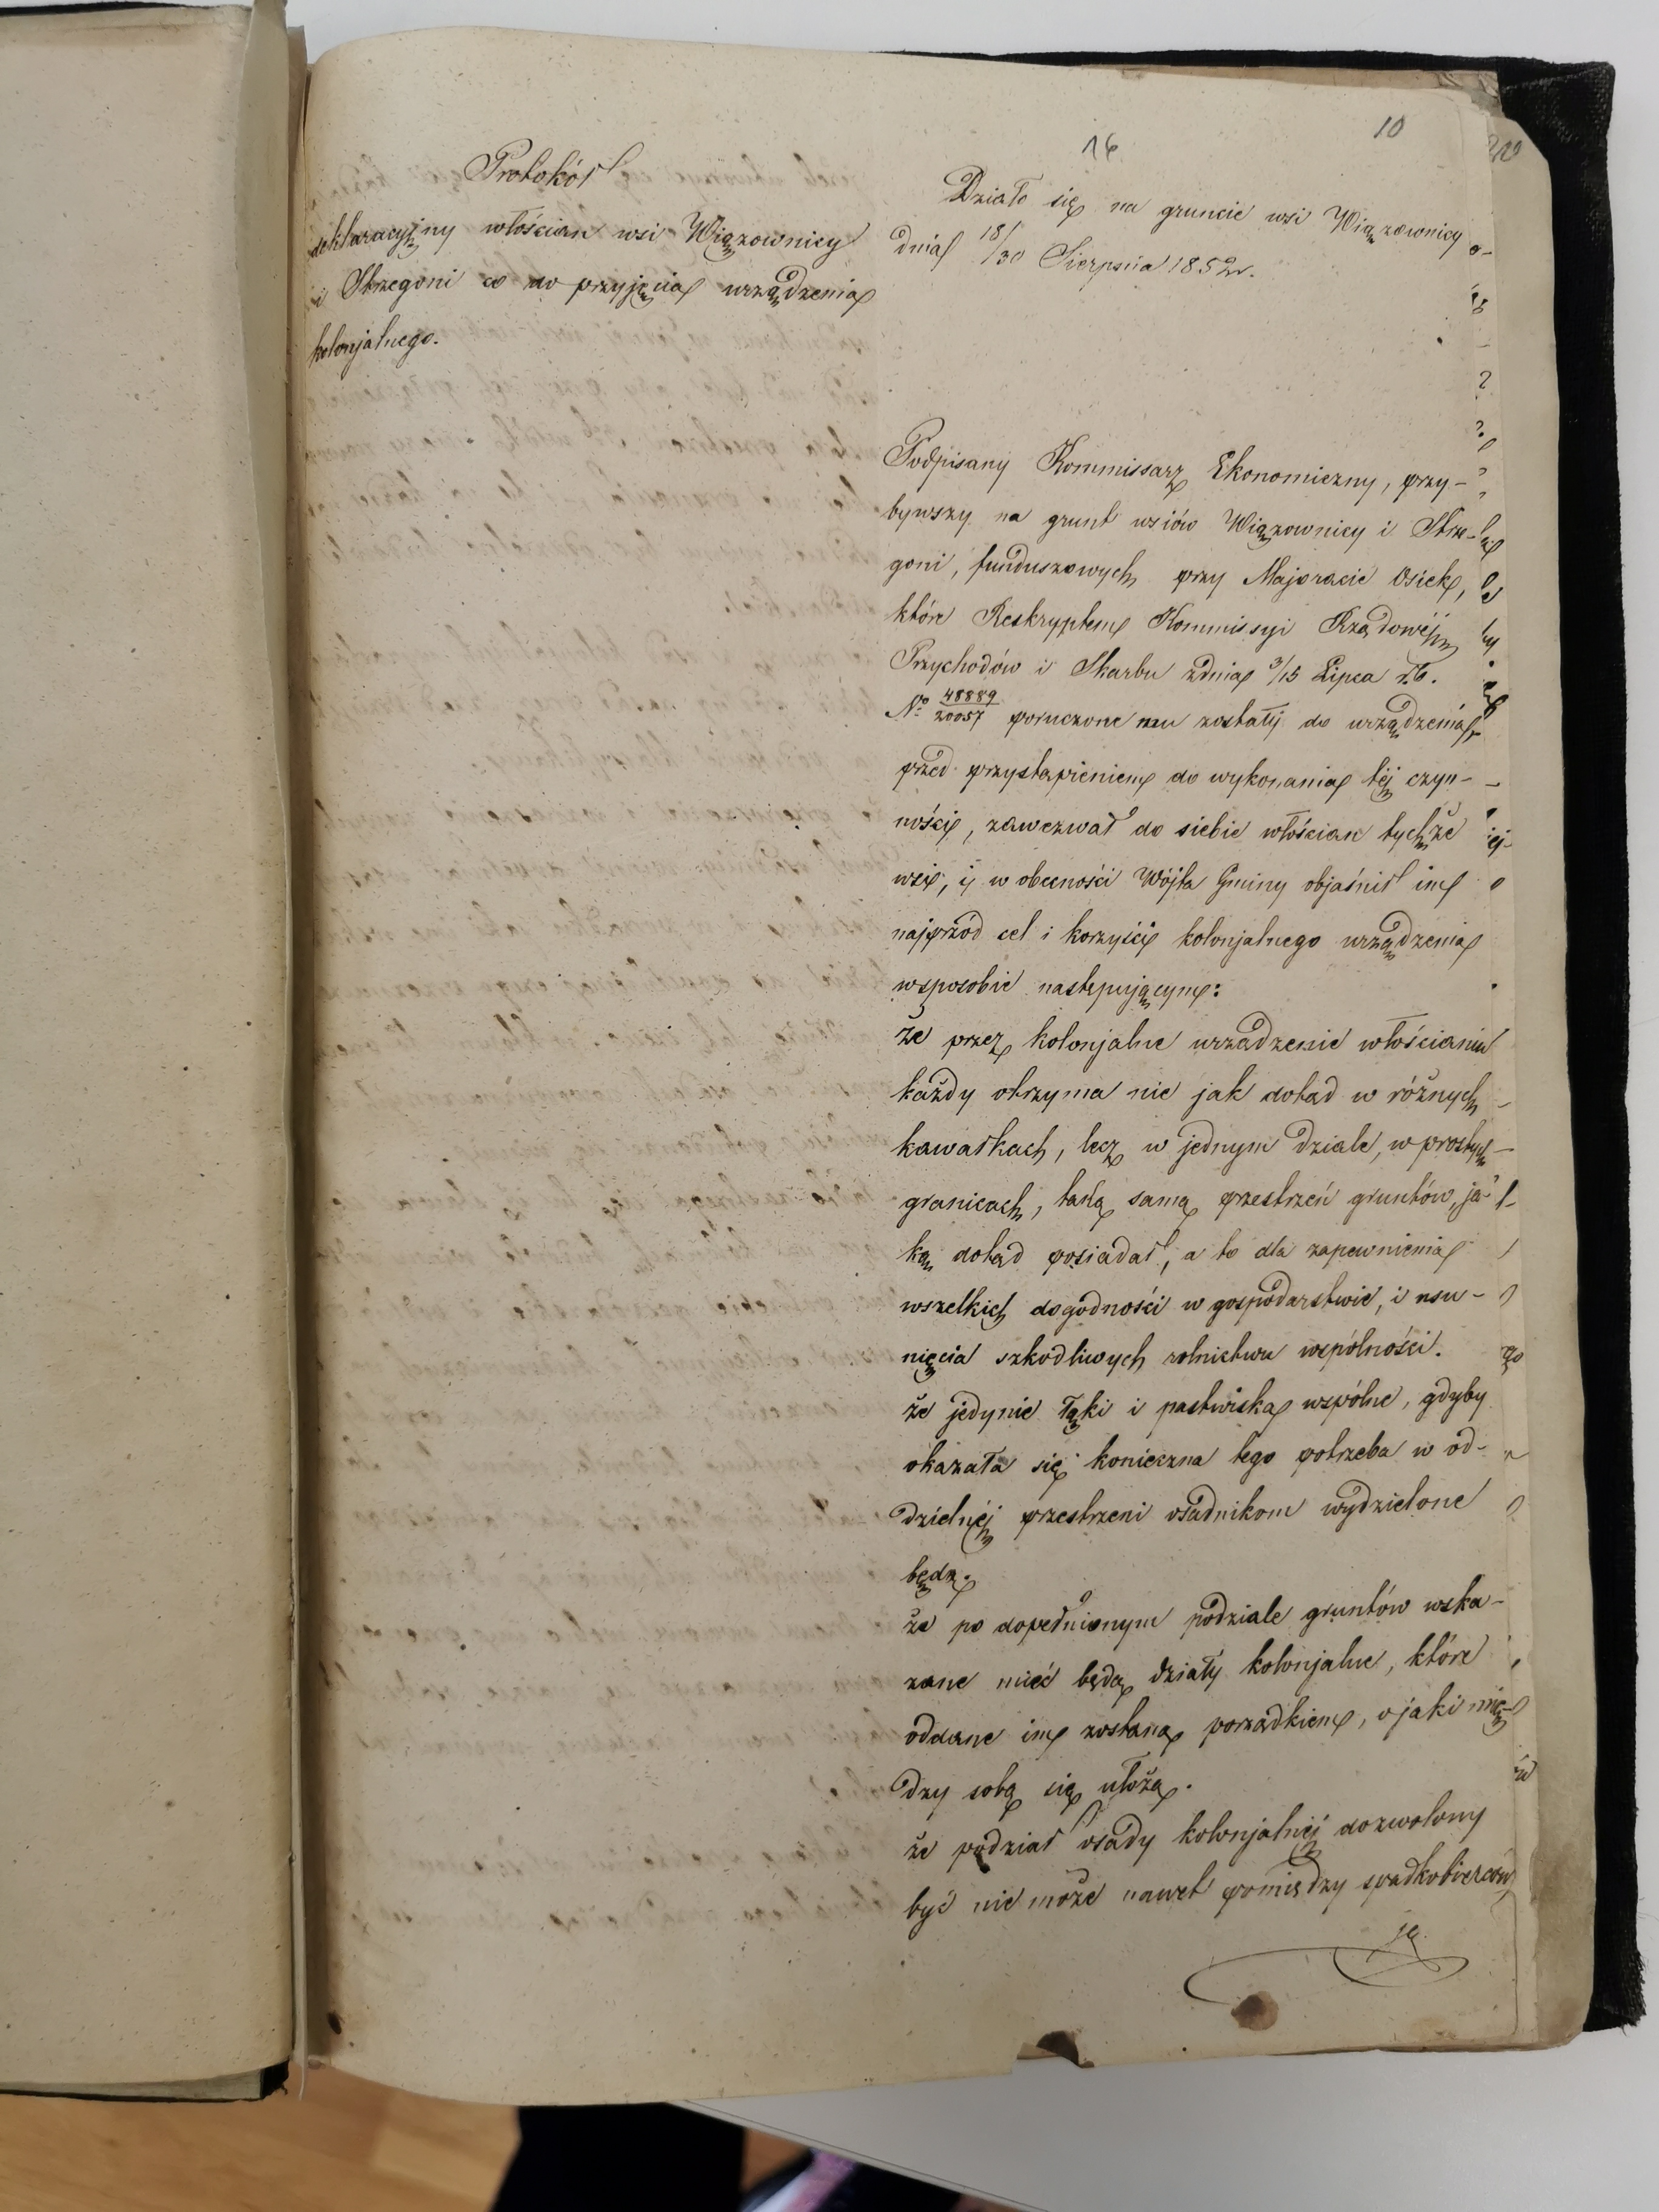 10
16
Protokół
deklaracyjny włościan wsi Wiązownicy
i Strzegoni co do przyjęcia urządzenia
kolonjalnego.
Działo się na gruncie wsi Wiązownicy
dnia 18/30 Sierpnia 1852 r.
Podpisany Kommissarz Ekonomiczny, przy-
bywszy na grunt wsiów Wiązownicy i Strze-
goni, funduszowych przy Majoracie Osiek,
które Reskryptem Kommissyi Rządowéj
Przychodów i Skarbu z dnia 3/15 Lipca r.b.
No 48889/20057 poruczone mu zostały do urządzenia,
przed przystąpieniem do wykonania téj czyn-
ności, zawezwał do siebie włościan tychże
wsi, i w obecności Wójta Gminy objaśnił im
najprzód cel i korzyści kolonjalnego urządzenia
wsposobie następującym:
że przez kolonjalne urządzenie włościanin
każdy otrzyma nie jak dotąd w różnych
kawałkach, lecz w jednym dziale, w prostych
granicach, taką samą przestrzeń gruntów, ja-
ką dotąd posiadał, a to dla zapewnienia
wszelkich dogodności w gospodarstwie, i usu-
nięcia szkodliwych rolnictwu wspólności.
że jedynie łąki i pastwiska wspólne, gdyby
okazała się konieczna tego potrzeba w od-
dzielnéj przestrzeni osadnikom wydzielone
będą.
że po dopełnionym podziale gruntów wska-
zane mieć będą działy kolonjalne, które
oddane im zostaną porządkiem, o jaki mię-
dzy sobą się ułożą.
że podział osady kolonjalnéj dozwolony
być nie może nawet pomiędzy spadkobierców